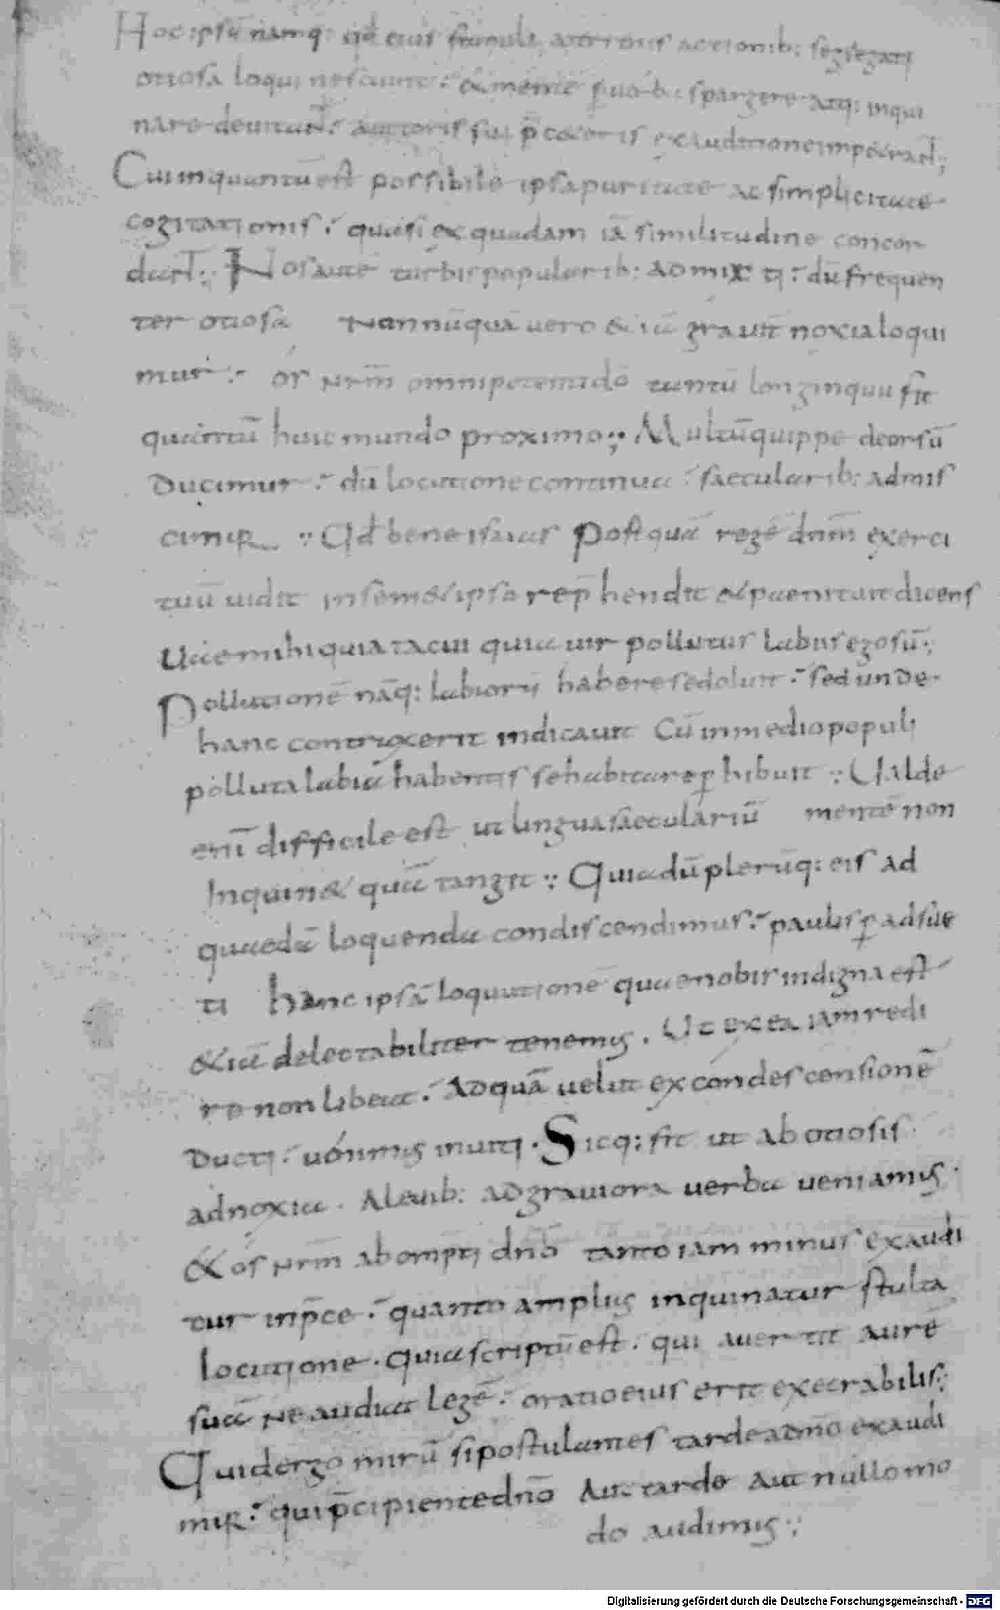 Hoc ipsū namq: qđ eius famuli a terrenis actionib: segregati
otiosa loqui nesciunt ·̃ & mente suā uƀ: spargere atq: inqui
nare deuitant ·̃ auctoris sui p̄ ceteris exauditione impetrant;
Cui inquantū est possibile ipsa puritate ac simplicitate
cogitationis ·̃ quasi ex quadam iā similitudine concor
dant ; Nos autē turbis popularib: admixti ·̃ dū frequen
ter otiosa Nonnūquā uero & iā grauit̄ noxia loqui
mur ·̃ os nr̄m omnipotenti dō tantū longinquū fit
quantū huic mundo proximo ; Multū quippe deorsū
ducimur ·̃ dū locutione continua ·̃ saecularib: admis
cimur ; Qđ bene isaias Postquā regē dn̄m exerci
tuū uidit in sem&ipso rep̄hendit & paenituit dicens
Uae mihi quia tacui quia uir pollutus labiis ego sū ;
Pollutionē nāq: labiorū habere se doluit ·̃ sed unde
hanc contraxerit indicauit Cū in medio populi
polluta labia habentis se habitare ꝑhibuit ; Ualde
enī difficile est ut lingua saeculariū mentē non
Inquin& quā tangit ; Quia dū plerūq: eis ad
quaedā loquenda condiscendimus ·̃ paulis ꝑ adsue
ti hanc ipsā loquutionē quae nobis indigna est
&iā delectabiliter tenemus . Ut ex ea iam redi
re non libeat ·̃ Ad quā uelut ex condescensionē
ducti ·̃ uenimus inuiti · Sicq: fit ut ab otiosis
ad noxia . A leuib: ad grauiora uerba ueniamus ·
& os nr̄m ab omp̄ti dn̄o tanto iam minus exaudi
tur in p̄ce ·̃ quanto amplius inquinatur stulta
locutione . Quia scriptū est . qui auertit aurē
suā ne audiat legē ·̃ oratio eius erit execrabilis ;
Quid ergo mirū si postulantes tarde a dn̄o exaudi
mur ·̃ qui p̄cipiente dn̄o Aut tarde Aut nullo mo
do audimus ;
Digitalisierung gefördert durch die Deutsche Forschungsgemeinschaft - DFG